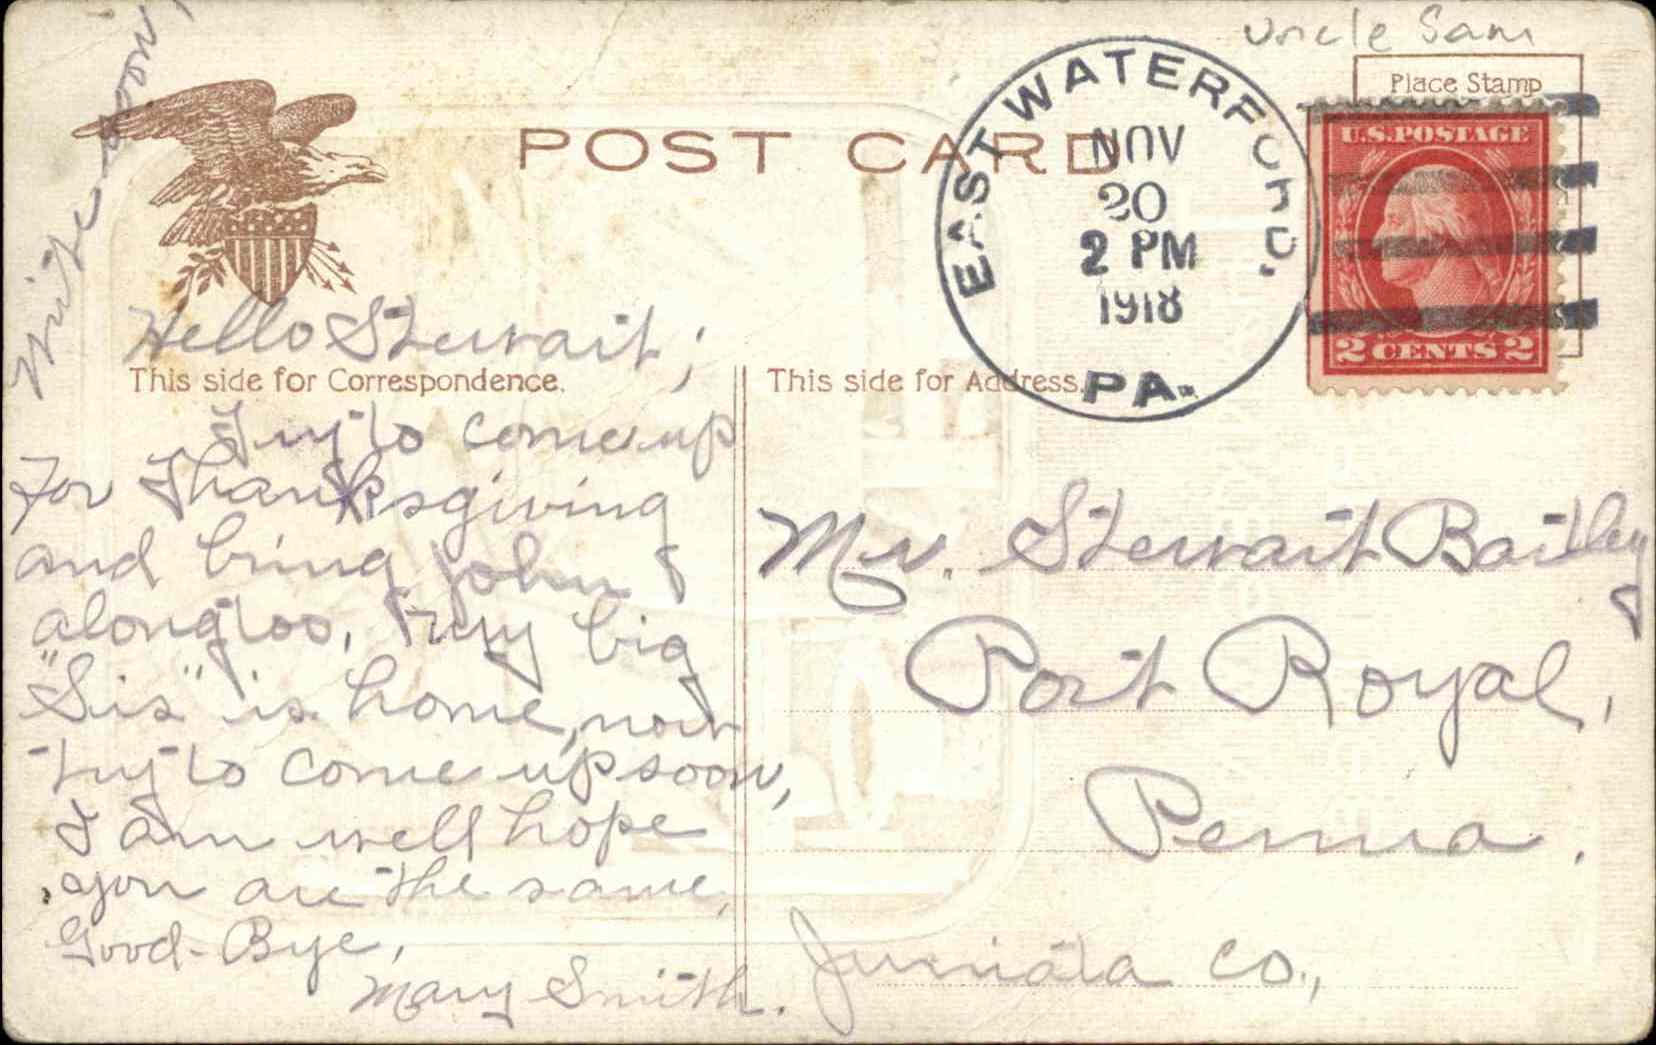 Uncle Sam
Place Stamp
U.S. POSTAGE
2 CENTS 2
POST CARD
EAST WATERFORD,
NOV
20
2 PM
1918
PA.
Write soon,
Hello Stewart;
This side for Correspondence.
Try to come up
for Thanksgiving
and bring John
along too, my big
"Sis" is home, now
try to come up soon,
I am well hope
you are the same,
Good-Bye,
Mary Smith.
This side for Address.
Mr. Stewart Bailey
Port Royal,
Penna.
Juniata Co.,